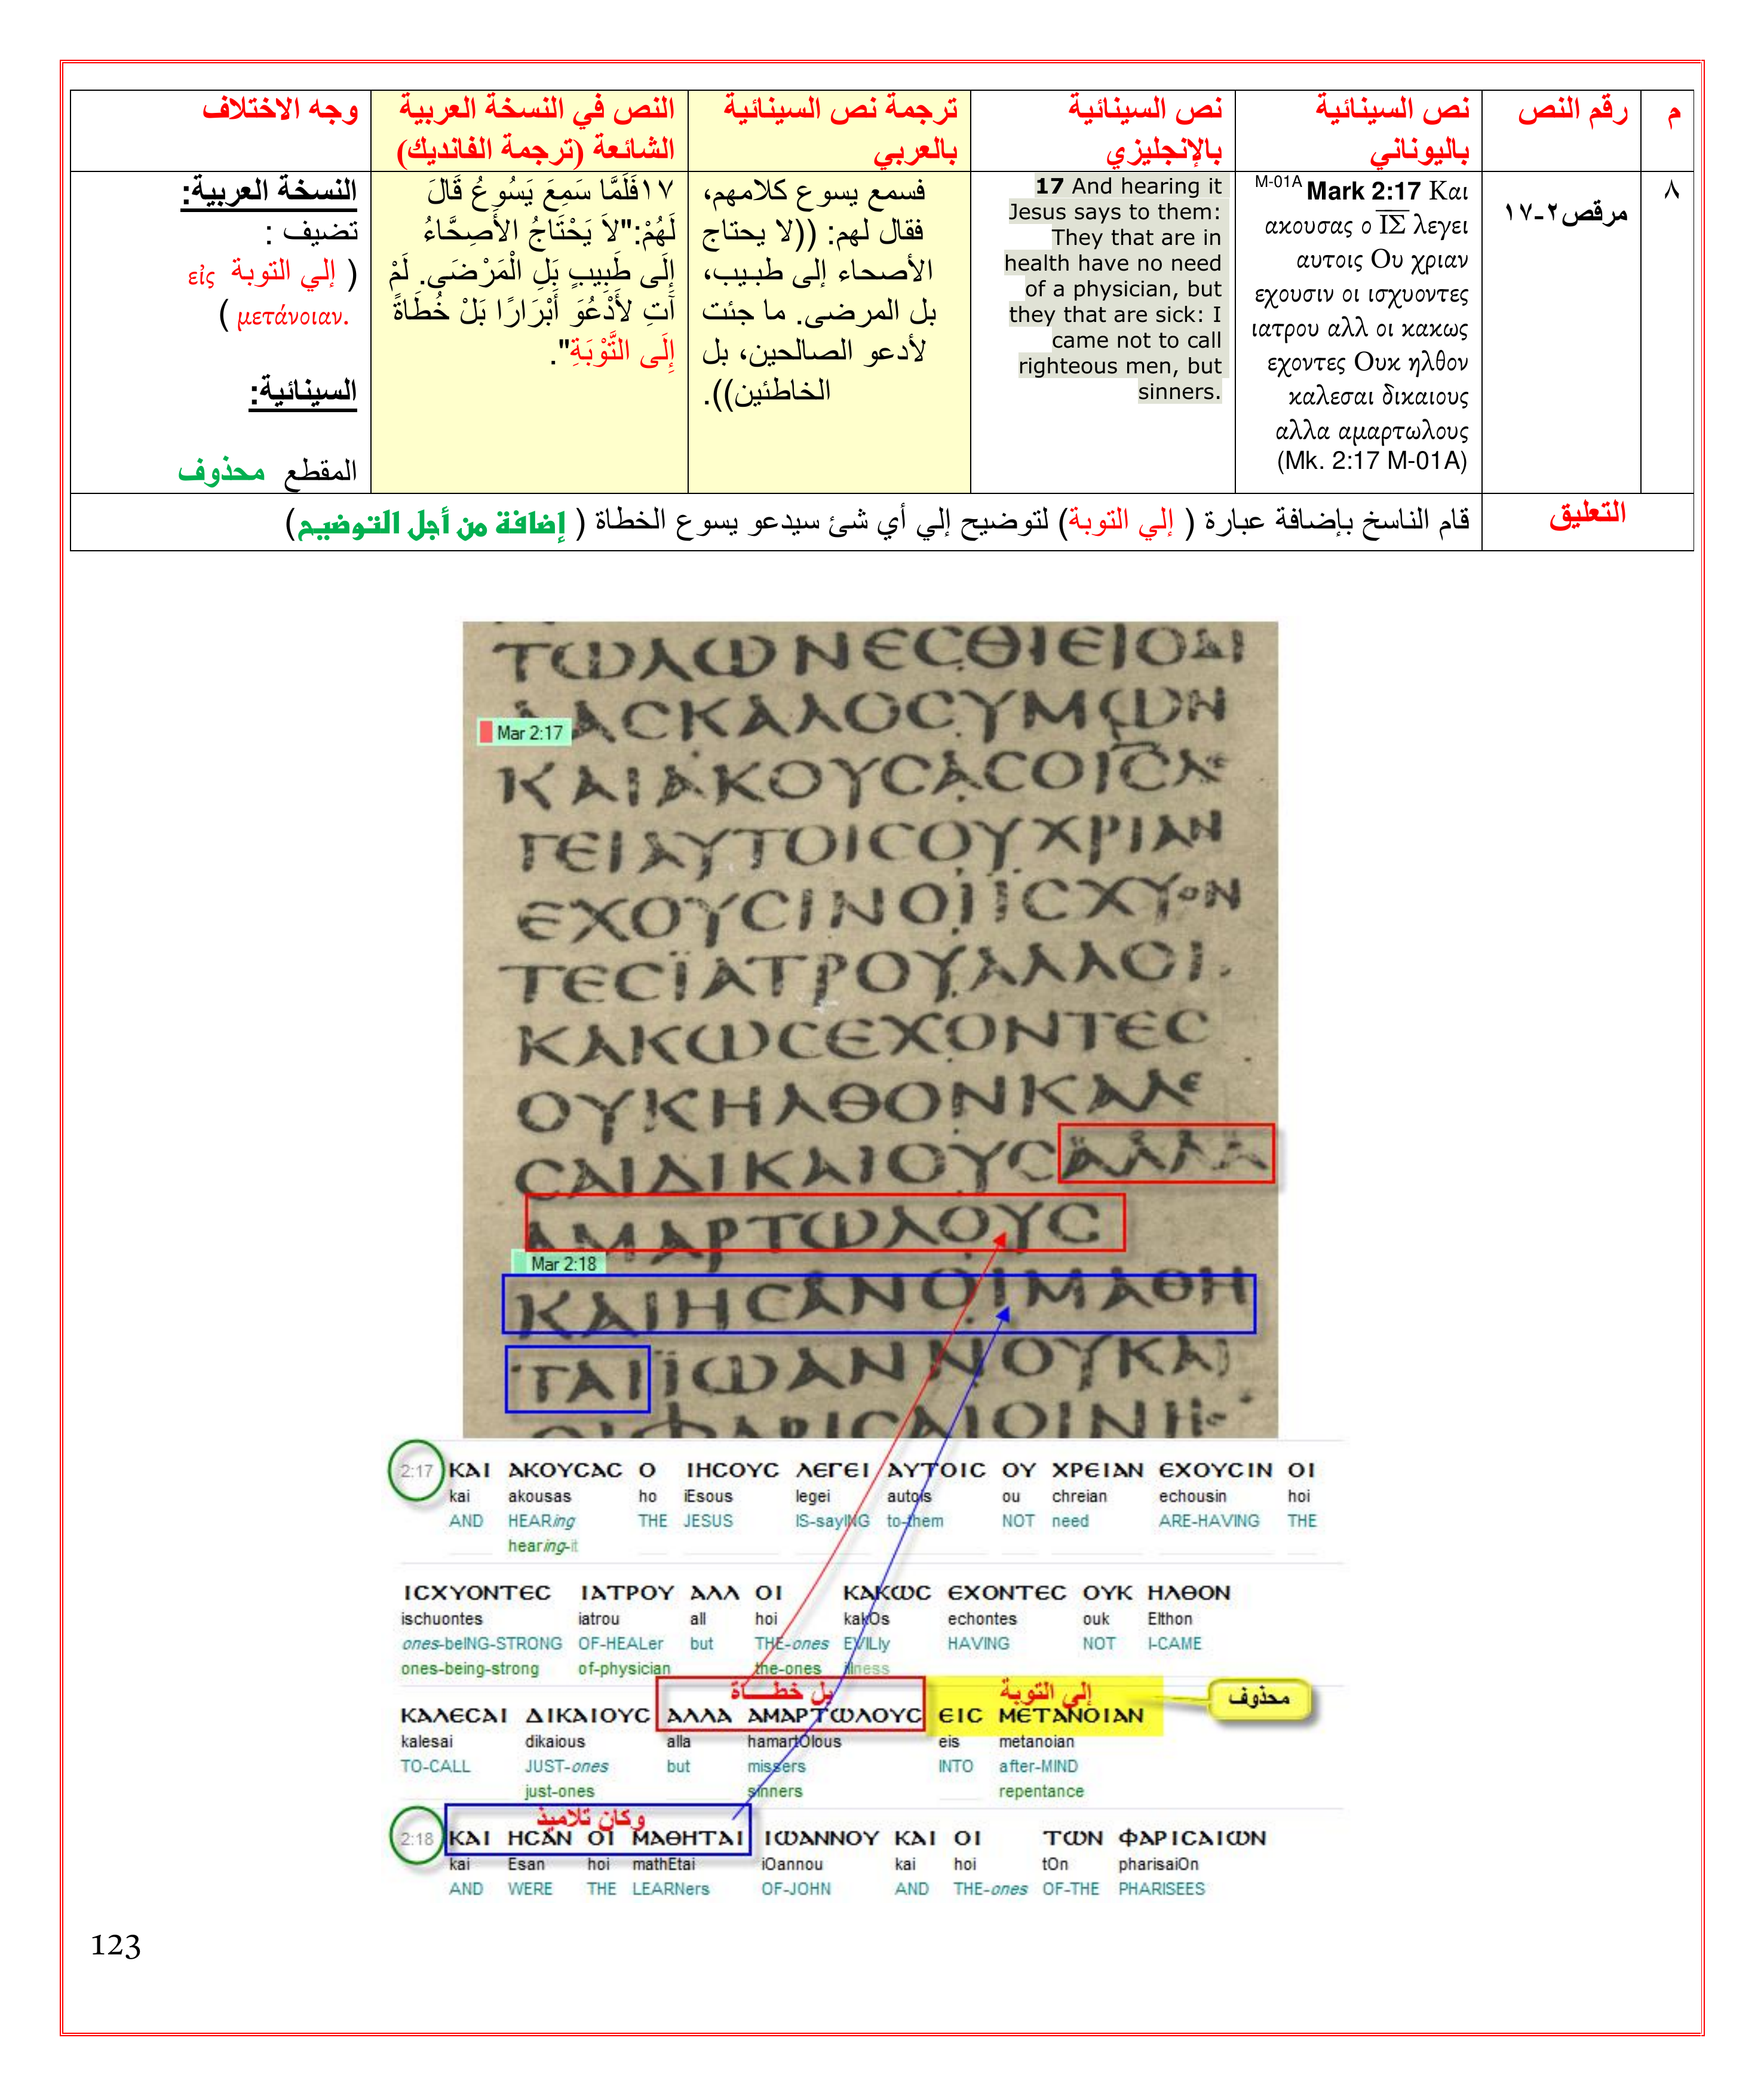 م
رقم النص
نص السينائية
باليوناني
نص السينائية
بالإنجليزي
ترجمة نص السينائية
بالعربي
النص في النسخة العربية
الشائعة (ترجمة الفانديك)
وجه الاختلاف
٨
مرقص٢-١٧
M-01A Mark 2:17 Και
ακουσας ο ΙΣ λεγει
αυτοις Ου χριαν
εχουσιν οι ισχυοντες
ιατρου αλλ οι κακως
εχοντες Ουκ ηλθον
καλεσαι δικαιους
αλλα αμαρτωλους
(Mk. 2:17 M-01A)
17 And hearing it
Jesus says to them:
They that are in
health have no need
of a physician, but
they that are sick: I
came not to call
righteous men, but
sinners.
فسمع يسوع كلامهم،
فقال لهم: ((لا يحتاج
الأصحاء إلى طبيب،
بل المرضى. ما جئت
لأدعو الصالحين، بل
الخاطئين)).
١٧فَلَمَّا سَمِعَ يَسُوعُ قَالَ
لَهُمْ:"لاَ يَحْتَاجُ الأَصِحَّاءُ
إِلَى طَبِيبٍ بَلِ الْمَرْضَى. لَمْ
آتِ لأَدْعُوَ أَبْرَارًا بَلْ خُطَاةً
إِلَى التَّوْبَةِ".
النسخة العربية:
تضيف :
( إلي التوبة εἰς
μετάνοιαν. )
السينائية:
المقطع محذوف
التعليق
قام الناسخ بإضافة عبارة ( إلي التوبة) لتوضيح إلي أي شئ سيدعو يسوع الخطاة ( إضافة من أجل التوضيح)
ΤΩΛΩΝΕϹΘΙΕΙΟΔΙ
ΔΑϹΚΑΛΟϹΥΜΩΝ
Mar 2:17
ΚΑΙΑΚΟΥϹΑϹΟΙϹΛΕ
ΓΕΙΑΥΤΟΙϹΟΥΧΡΙΑΝ
ΕΧΟΥϹΙΝΟΙΙϹΧΥΟΝ
ΤΕϹΪΑΤΡΟΥΑΛΛΟΙ
ΚΑΚΩϹΕΧΟΝΤΕϹ
ΟΥΚΗΛΘΟΝΚΑΛΕ
ϹΑΙΔΙΚΑΙΟΥϹΑΛΛΑ
ΑΜΑΡΤΩΛΟΥϹ
Mar 2:18
ΚΑΙΗϹΑΝΟΙΜΑΘΗ
ΤΑΙΪΩΑΝΝΟΥΚΑΙ
ΟΙΦΑΡΙϹΑΙΟΙΝΗ
2:17 ΚΑΙ ΑΚΟΥϹΑϹ Ο ΙΗϹΟΥϹ ΛΕΓΕΙ ΑΥΤΟΙϹ ΟΥ ΧΡΕΙΑΝ ΕΧΟΥϹΙΝ ΟΙ
kai akousas ho iEsous legei autois ou chreian echousin hoi
AND HEARing THE JESUS IS-sayING to-them NOT need ARE-HAVING THE
hearing-it
ΙϹΧΥΟΝΤΕϹ ΙΑΤΡΟΥ ΑΛΛ ΟΙ ΚΑΚΩϹ ΕΧΟΝΤΕϹ ΟΥΚ ΗΛΘΟΝ
ischuontes iatrou all hoi kakOs echontes ouk Elthon
ones-beING-STRONG OF-HEALer but THE-ones EVILly HAVING NOT I-CAME
ones-being-strong of-physician the-ones illness
بل خطـــاة
إلي التوبة
محذوف
ΚΑΛΕϹΑΙ ΔΙΚΑΙΟΥϹ ΑΛΛΑ ΑΜΑΡΤΩΛΟΥϹ ΕΙϹ ΜΕΤΑΝΟΙΑΝ
kalesai dikaious alla hamartOlous eis metanoian
TO-CALL JUST-ones but missers INTO after-MIND
just-ones sinners repentance
وكان تلاميذ
2:18 ΚΑΙ ΗϹΑΝ ΟΙ ΜΑΘΗΤΑΙ ΙΩΑΝΝΟΥ ΚΑΙ ΟΙ ΤΩΝ ΦΑΡΙϹΑΙΩΝ
kai Esan hoi mathEtai iOannou kai hoi tOn pharisaiOn
AND WERE THE LEARNers OF-JOHN AND THE-ones OF-THE PHARISEES
123